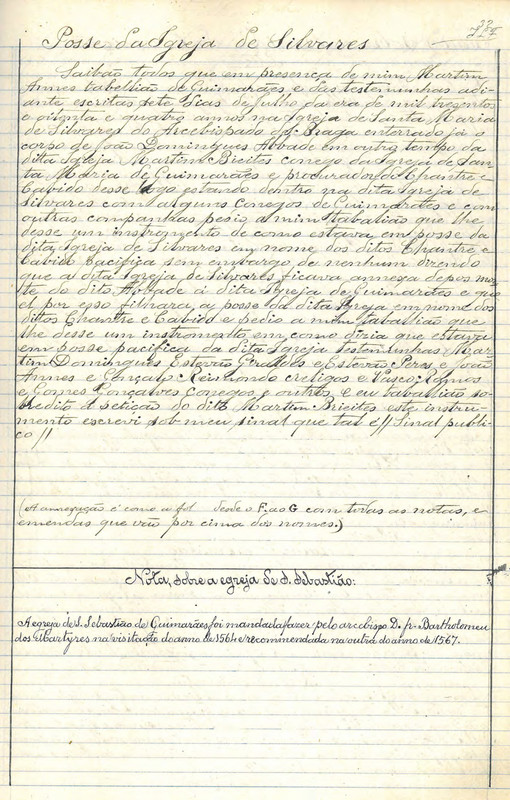 Posse da Igreja de Silvares
Saibão todos que em presença de mim Martim
Annes tabellião de Guimarães e das testemunhas adi-
ante escritas sete dias de Julho da era de mil tresentos
e oitenta e quatro annos na Igreja de Santa Maria
de Silvares do Arcebispado de Braga enterrado foi o
corpo de João Domingues Abbade em outro tempo da
dita Igreja Martim Bieites conego da Igreja de San-
ta Maria de Guimarães e procurador do Chantre e
Cabido desse logo estando dentro na dita Igreja de
Silvares com alguns Conegos de Guimarães e com
outras companhas pedio a mim tabalião que lhe
desse um instromento de como estava em posse da
dita Igreja de Silvares em nome dos ditos Chantre e
Cabido pacifica sem embargo de nenhum dizendo
que a dita Igreja de Silvares ficava annega depos mor
te do dito Abbade á dita Igreja de Guimarães e que
el por esso filhara a posse da dita Igreja em nome dos
dittos Chantre e Cabido e pedio a mim tabalião que
lhe desse um instromento em como dizia que estava
em posse pacifica da dita Igreja testemunhas Mar-
tim Domingues Estevão Geraldes e Estevão Peres e João
Annes e Gonçalo Reimondo creligos e Vasco Ramos
e Gomes Gonçalves Conegos e outros e eu tabalião so-
bredito á petição do dito Martim Bieites este instru-
mento escrevi sob meu sinal que tal é // Sinal publi-
co //
(A annegação é como a fol desde o F. ao G com todas as notas, e
emendas que vão por cima dos nomes.)
Nota, sobre a egreja de S. Sebastião:
A egreja de S. Sebastião de Guimarães, foi mandada fazer pelo arcebispo D. fr. Bartholomeu
dos Martyres na visitação do anno de 1564 e recommendada na outra do anno de 1567.